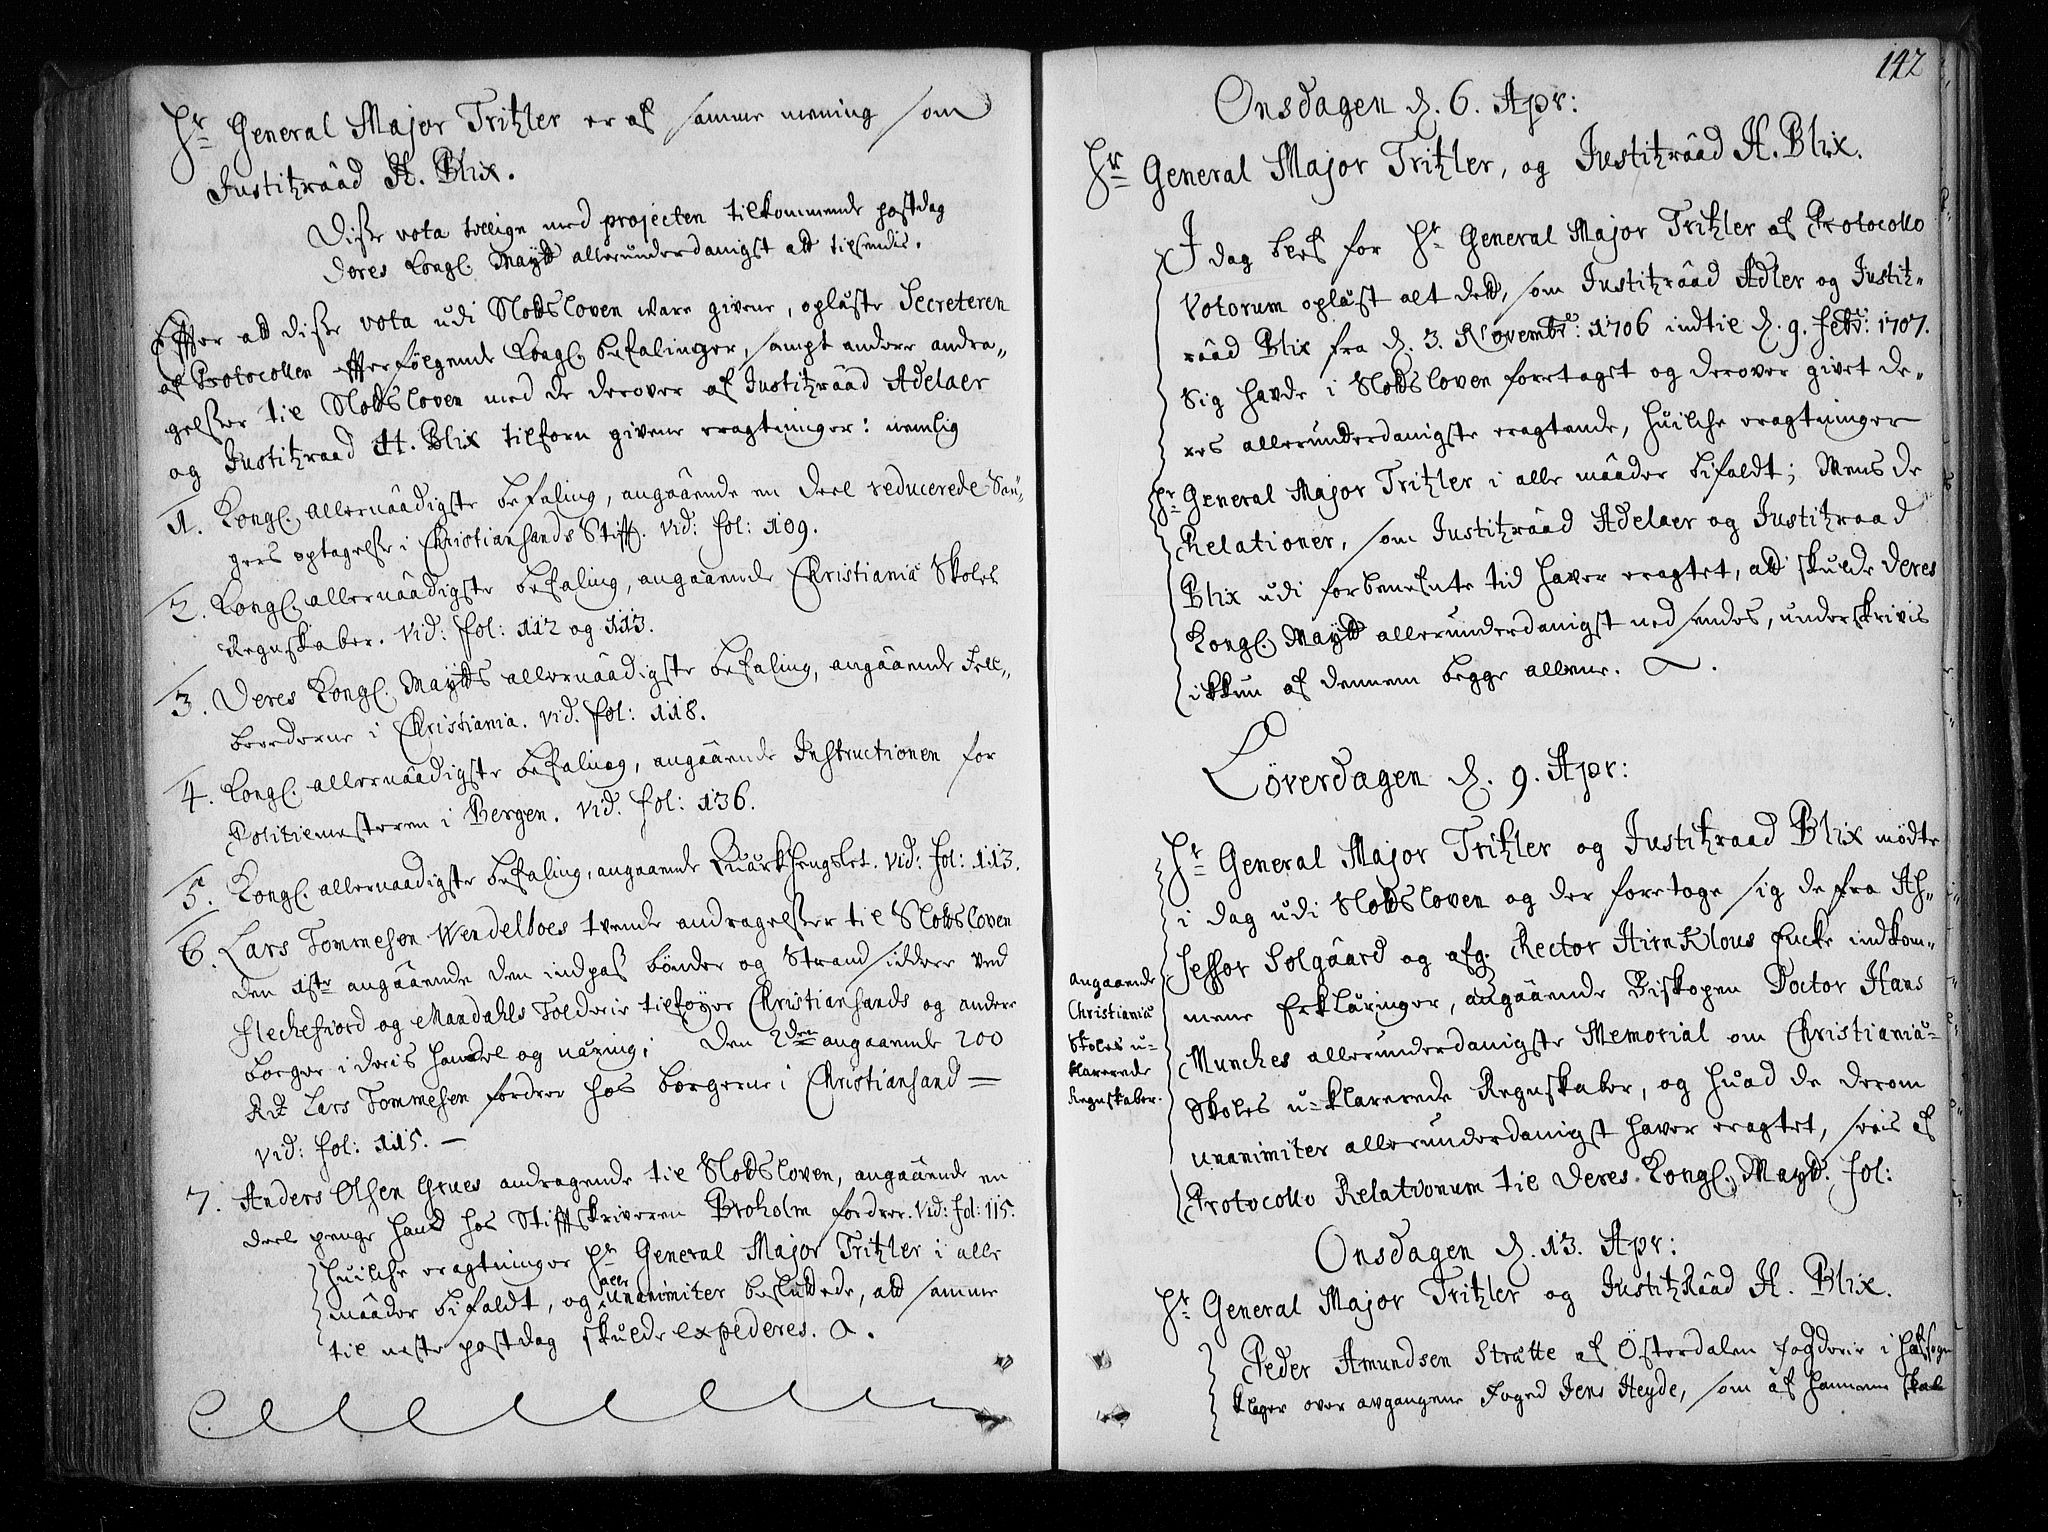 Hr General Major Tritzler er af samme mening som
Justitzrååd H. Blix.
Disse vota tillige med projecten tilkommende postdag
deres Kongl. Maytt allerunderdanigst att tilsendis.
Effter att disse vota udi Slottsloven ware givene, oplæste Secreteren
af Protocollen effterfølgende Kongl. befalinger, sampt andere andra„
gelser til Slottsloven med de derover af Justitzrååd Adelaer
og Justitzraad H. Blix tilforn givene eragtninger: nemlig
1. Kongl. allernåådigste befaling, angåående en deel reducerede Sau„
gers optagelse i Christiansands Stifft. vid: fol: 109.
2. Kongl. allernåådigste befaling, angaaende Christianiæ Skoles
Regnskaber. vid: fol: 112 og 113.
3. Deres Kongl. Maytts allernåådigste befaling, angåående Fell„
beerderne i Christiania. vid. fol: 118.
4. Kongl. allernåådigste befaling, angåående Instructionen for
Politiemesteren i Bergen. vid. fol: 136.
5. Kongl. allernaadigste befaling, angaaende Quærkhengslet. vid: fol: 113.
6. Lars Tommesøn Wendelboes tvende andragelser til Slottsloven
den 1ste angåående den indpas bønder og Strandsiddere ved
Fleckefiord og Mandahls Tolderie tilføyer Christiansands og andere
borger i deris handel og næring; Den 2den angaaende 200
Rd Lars Tommesen fordrer hos borgerne i Christiansand —
vid: fol: 115. —
7. Anders Olsen Grues andragende til Slottsloven, angåående en
deel penge hand hos Stifftskriveren Broholm fordrer. vid: fol: 115.
Huilche eragtninger Hr General Major Tritzler i alle
mååder bifaldt, og alle unanimiter besluttede, att samme
til neste postdag skulde expederes.
142
Onsdagen d. 6. Apr:
Hr General Major Tritzler, og Justitzrååd H. Blix.
I dag blef for Hr General Major Tritzler af Protocollo
Votorum oplæst alt dett, som Justitzrååd Adler og Justitz„
rååd Blix fra d. 3. Novembr: 1706 indtil d. 9. febr: 1707.
Sig havde i Slottsloven foretaget og derover givet de„
res allerunderdanigste eragtende, huilche eragtninger
Hr General Major Tritzler i alle mååder bifaldt; Mens de
Relationer, som Justitzrååd Adelaer og Justitzraad
Blix udi forbenefnte tid haver eragtet, att skulde deres
Kongl. Maytt allerunderdanigst nedsendes, underskrivis
ikkun af dennem begge allene.
Löverdagen d. 9. Apr:
Hr General Major Tritzler og Justitzraad Blix mødte
i dag udi Slottsloven og der foretoge sig de fra As„
sessor Solgåård og afg. Rector Hirnklous Encke indkom„
mene Erklæringer, angåående Biskopen Doctor Hans
Munches allerunderdanigste Memorial om Christianiæ
Skoles u=klarerede Regnskaber, og huad de derom
unanimiter allerunderdanigst haver eragtet, seeis af
Protocollo Relationum til Deres Kongl. Maytt. fol:
Angaaende
Christianiæ
Skoles u=
klarerede
Regnskaber.
Onsdagen d. 13. Apr:
Hr General Major Tritzler og Justitzrååd H. Blix.
Peder Amundsen Strætte af Österdalen fogderie i
klager over avgangene Foged Jens Heyde, som af hannem skal